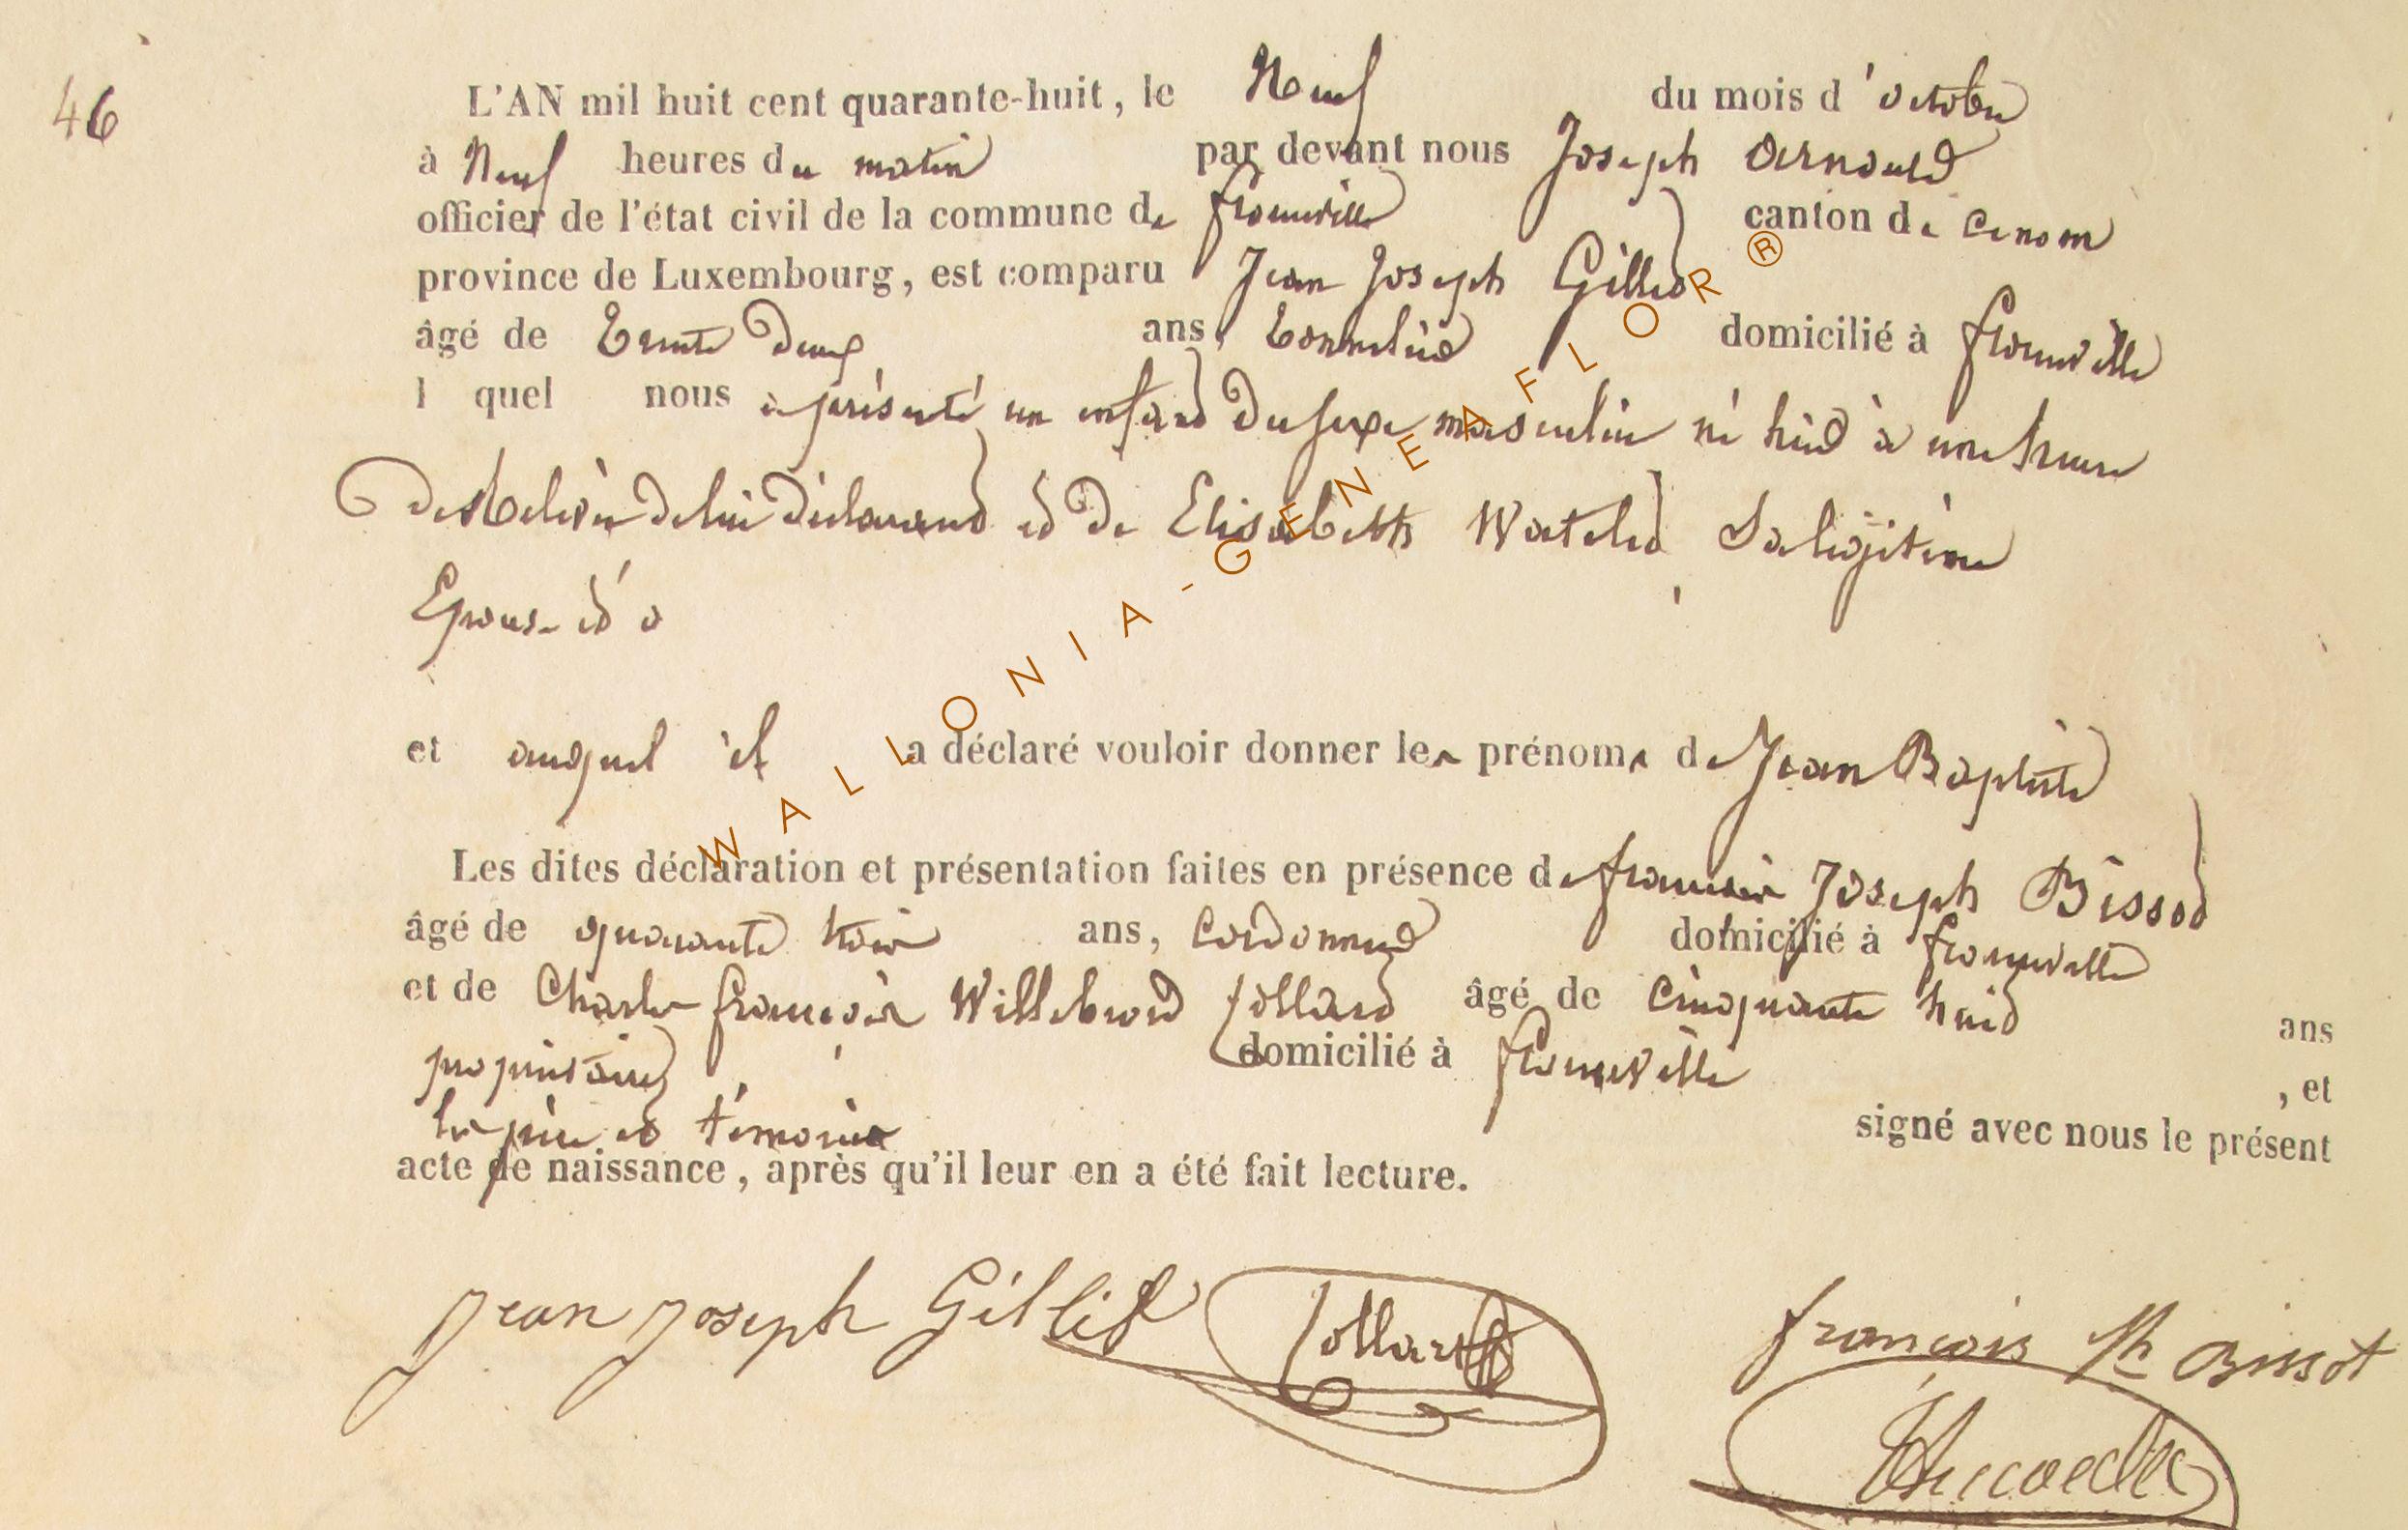 46
L'AN mil huit cent quarante-huit, le Neuf du mois d'octobre
à Neuf heures du matin par devant nous Joseph Arnould
officier de l'état civil de la commune de fronville canton de
province de Luxembourg, est comparu Jean Joseph Gillet
âgé de Trente Deux ans, Tonnelier domicilié à fronville
l quel nous a présenté un enfant Du sexe masculin né hier à une heure
De Relevée De lui Déclarant et De Elisabeth Watelet Sa légitime
Epouse et a
et auquel il a déclaré vouloir donner les prénoms de Jean Baptiste
Les dites déclaration et présentation faites en présence de françois Joseph Bissot
âgé de quarante trois ans, Cordonnier domicilié à fronville
et de Charles françois Willebrord Jollard âgé de Cinquante huit ans
propriétaire domicilié à fronville , et
les père et témoins signé avec nous le présent
acte de naissance, après qu'il leur en a été fait lecture.
Jean Joseph Gillet Jollard françois Jh Bissot
WALLONIA-GENEAFLOR ®